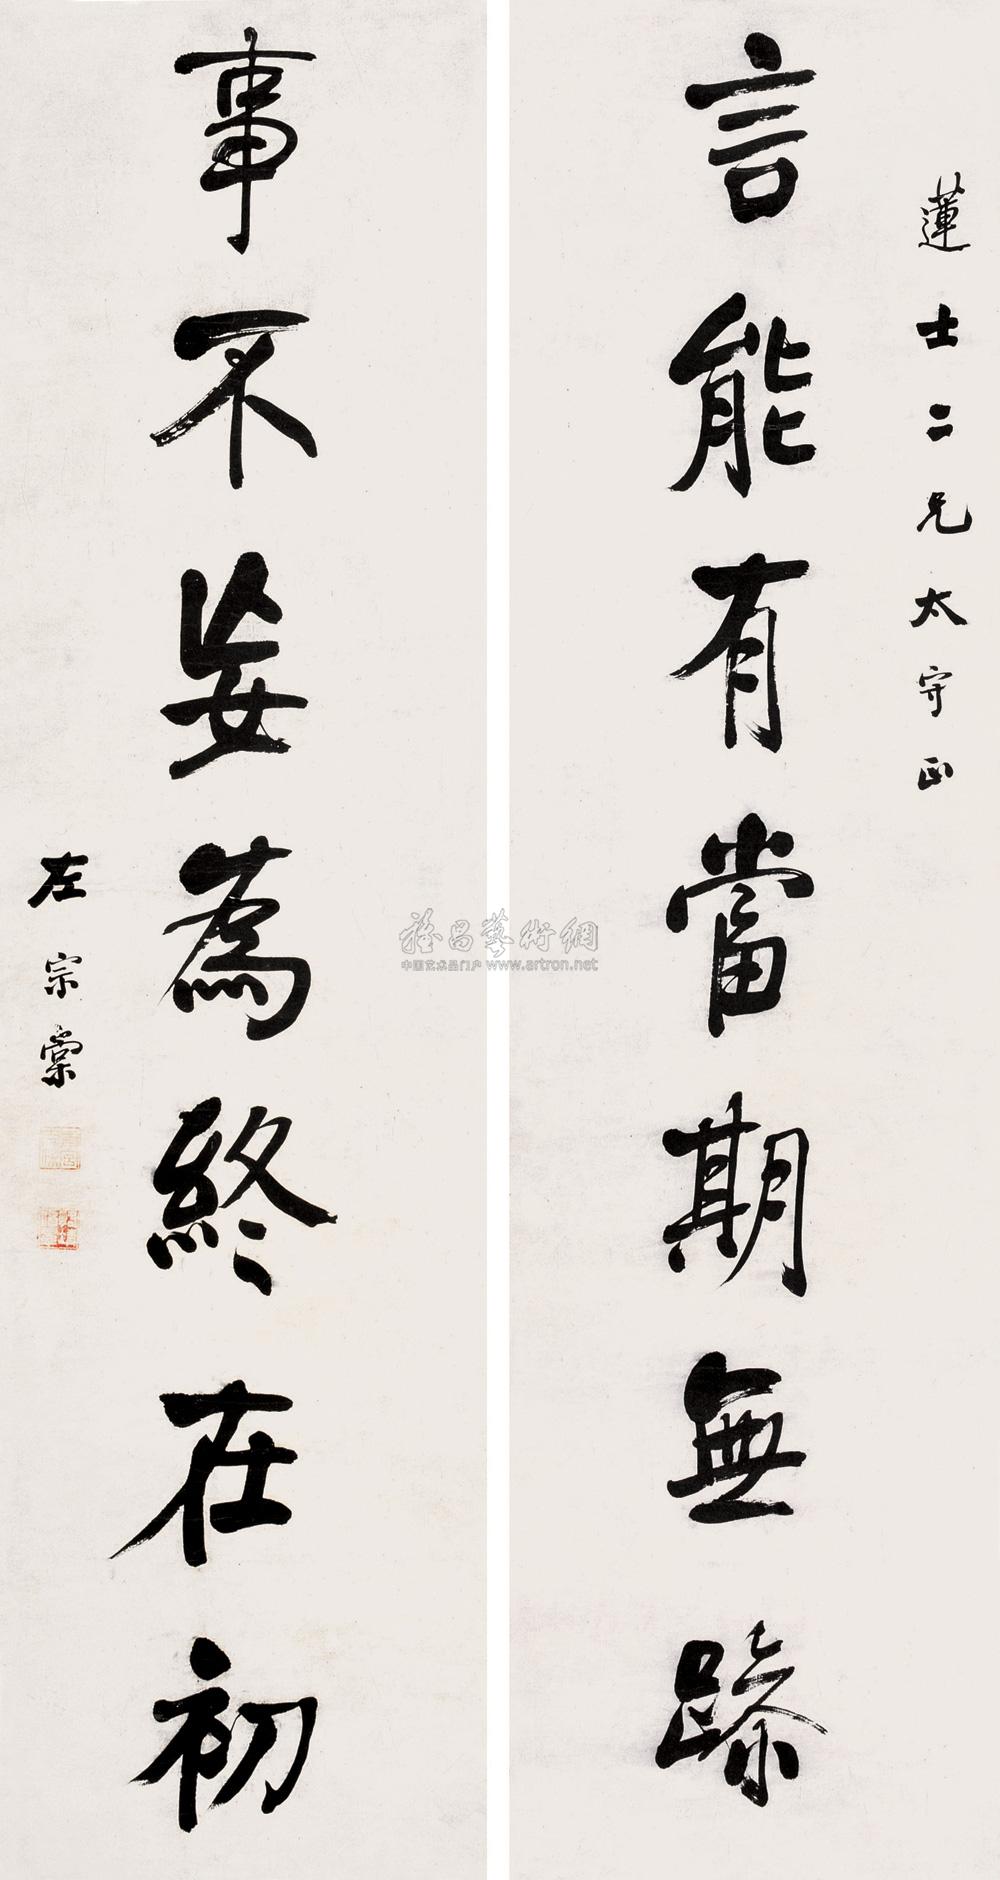 蓮士二兄太守正
言能有當期無疎
事不妄為終在初
左宗棠
雅昌藝術網
中国艺术品门户 www.artron.net